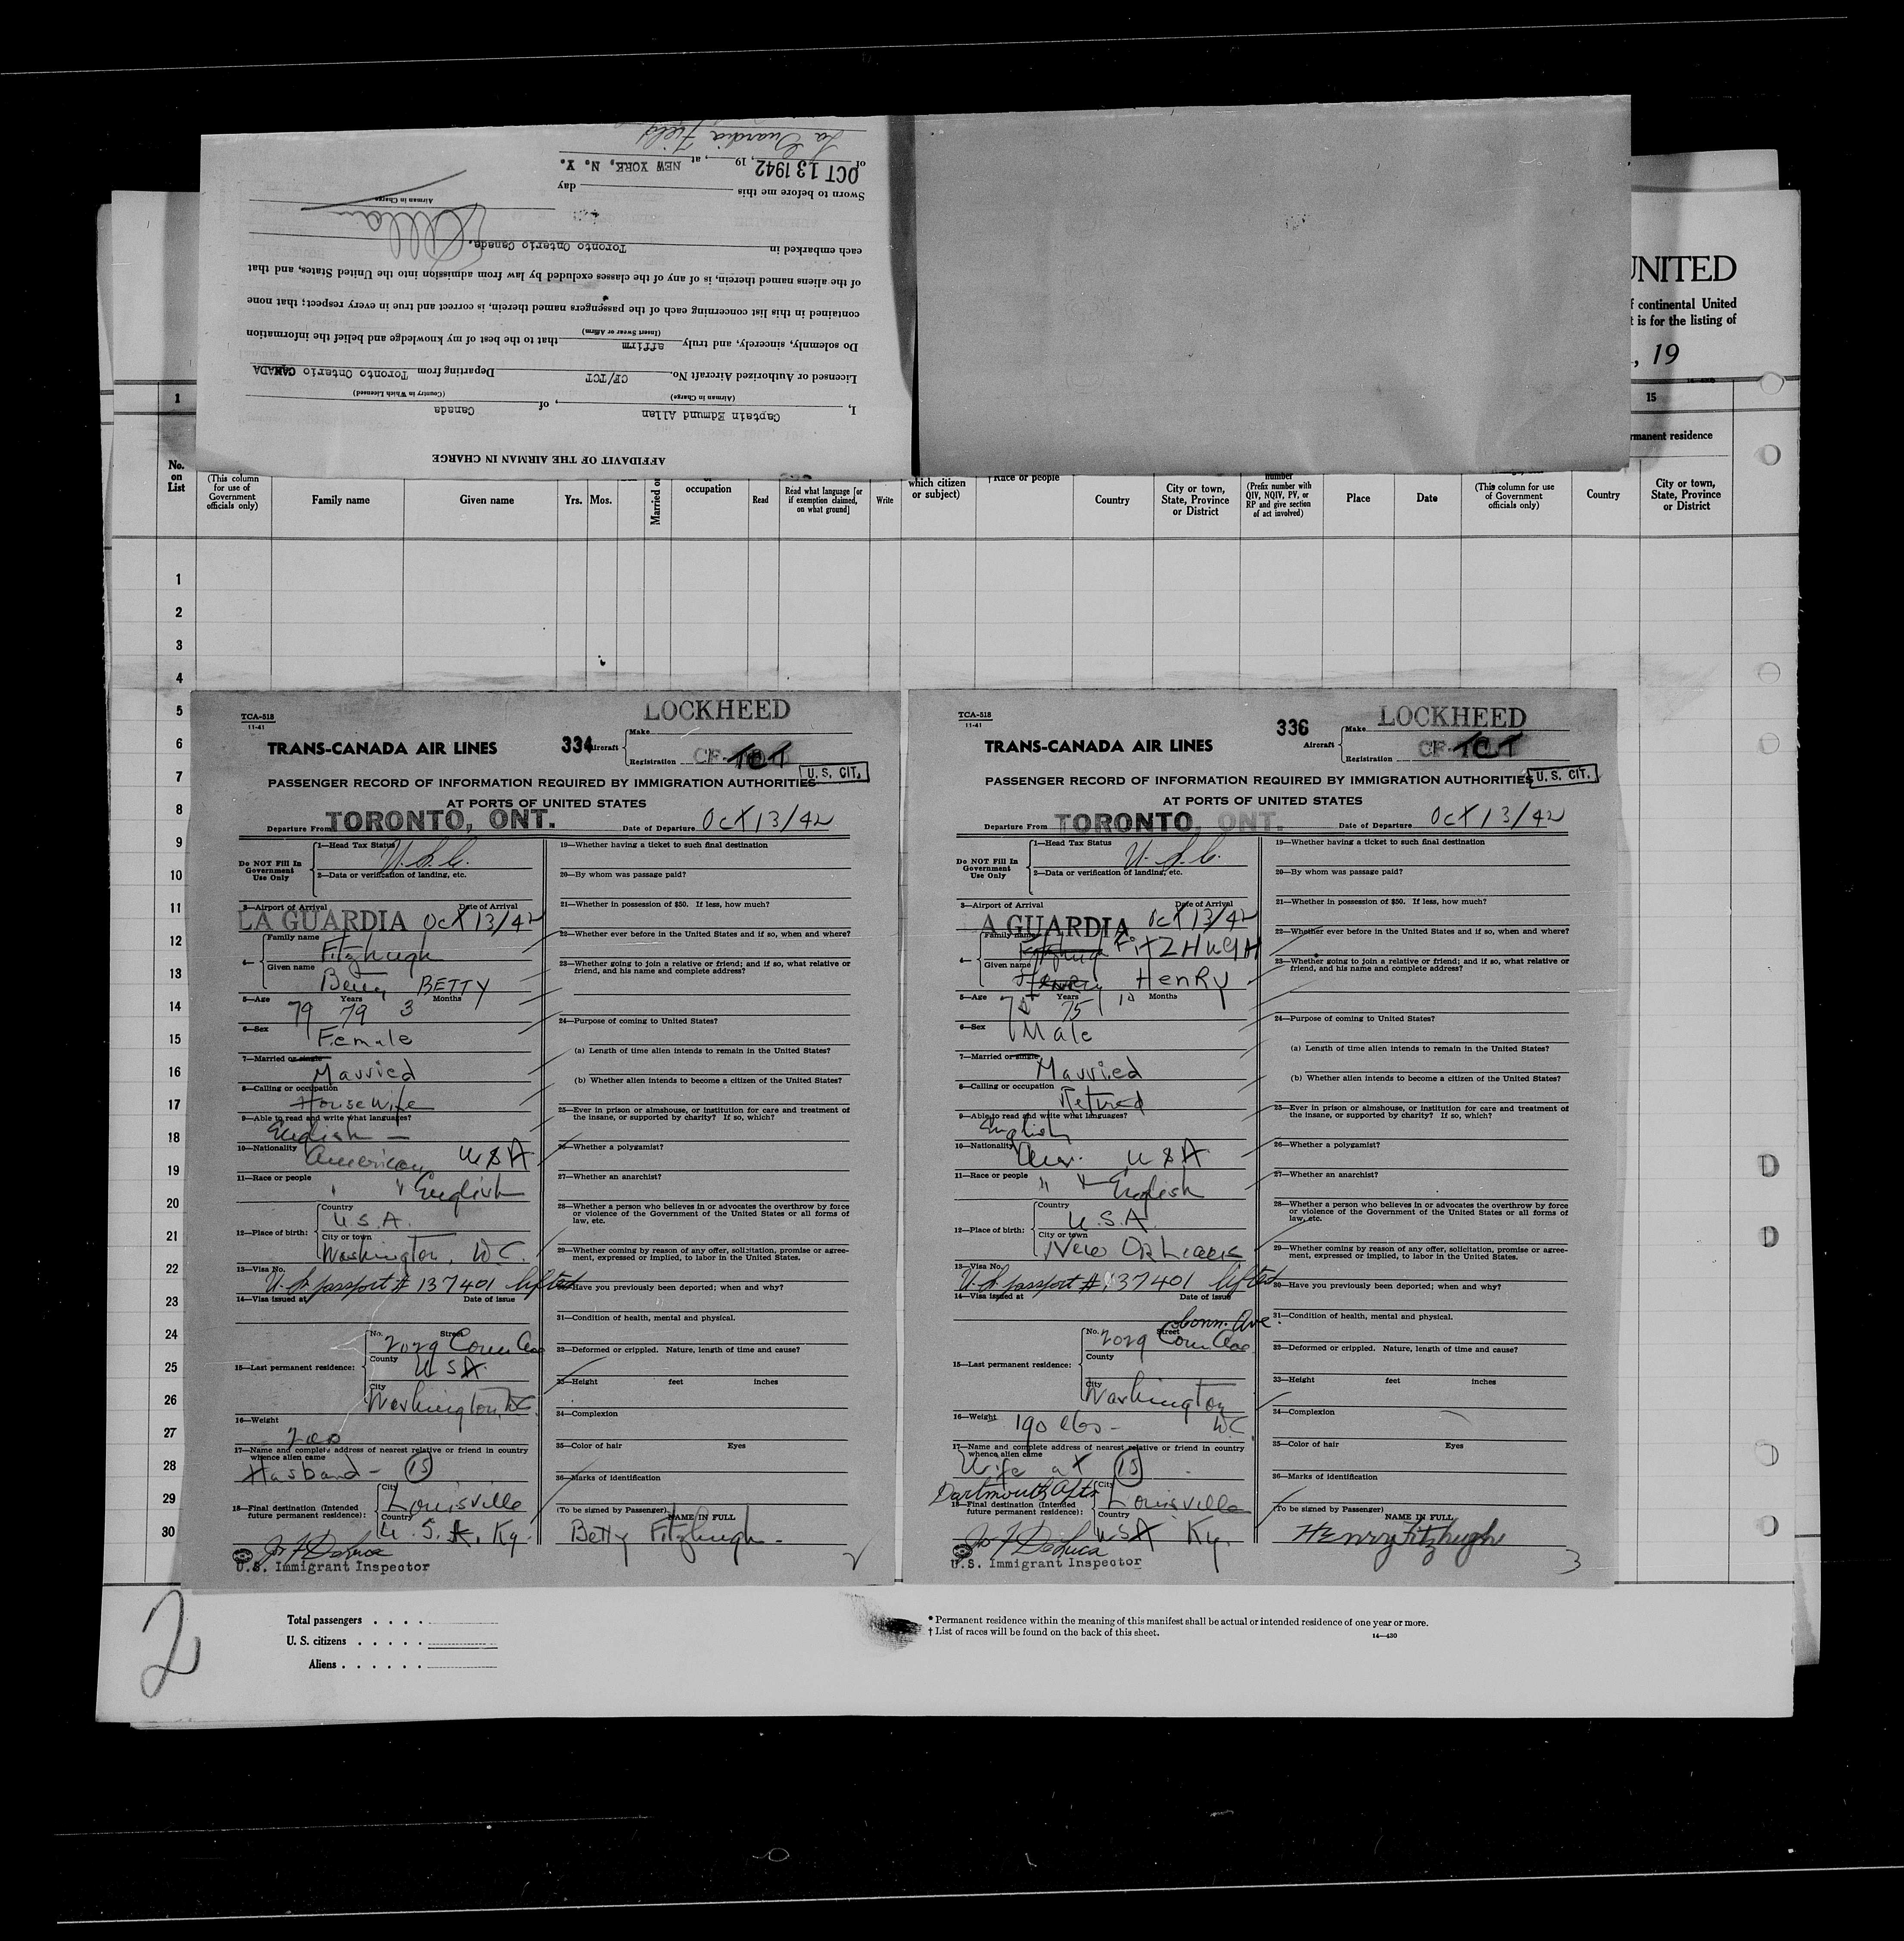 AFFIDAVIT OF THE AIRMAN IN CHARGE
I, Captain Edmund Allan, of Canada
(Airman in Charge) (Country in Which Licensed)
Licensed or Authorized Aircraft No. CF/TCT Departing from Toronto Ontario CANADA
Do solemnly, sincerely, and truly affirm that to the best of my knowledge and belief the information
(Insert Swear or Affirm)
contained in this list concerning each of the passengers named therein, is correct and true in every respect; that none
of the aliens named therein, is of any of the classes excluded by law from admission into the United States, and that
each embarked in Toronto Ontario Canada.
Airman in Charge
Sworn to before me this day
of OCT 13 1942, 19, at NEW YORK, N. Y.
La Guardia Field
UNITED
f continental United
t is for the listing of
, 19
1
15
rmanent residence
No. on List
(This column for use of Government officials only)
Family name
Given name
Yrs. Mos.
Married or
occupation
Read
Read what language [or if exemption claimed, on what ground]
Write
which citizen or subject)
† Race or people
Country
City or town, State, Province or District
number
(Prefix number with QIV, NQIV, PV, or RP and give section of act involved)
Place
Date
(This column for use of Government officials only)
Country
City or town, State, Province or District
1
2
3
4
5
6
7
8
9
10
11
12
13
14
15
16
17
18
19
20
21
22
23
24
25
26
27
28
29
30
TCA-518
11-41
LOCKHEED
TRANS-CANADA AIR LINES
334
Aircraft
Make
Registration CF-TCT
U. S. CIT.
PASSENGER RECORD OF INFORMATION REQUIRED BY IMMIGRATION AUTHORITIES
AT PORTS OF UNITED STATES
Departure From TORONTO, ONT. Date of Departure Oct 13/42
Do NOT Fill In Government Use Only
1—Head Tax Status U.S.C.
2—Data or verification of landing, etc.
3—Airport of Arrival Date of Arrival
LA GUARDIA Oct 13/42
4—
Family name
Fitzhugh
Given name
Betty BETTY
5—Age Years Months
79 79 3
6—Sex
Female
7—Married or single
Married
8—Calling or occupation
Housewife
9—Able to read and write what languages?
English —
10—Nationality
American USA
11—Race or people
" " English
12—Place of birth:
Country
U.S.A.
City or town
Washington, D.C.
13—Visa No.
U.S. passport # 137401 lifted
14—Visa issued at Date of issue
15—Last permanent residence:
No. Street
2029 Conn Ave
County
USA
City
Washington, DC.
16—Weight
200
17—Name and complete address of nearest relative or friend in country
whence alien came
Husband — 15
18—Final destination (Intended
future permanent residence):
City
Louisville
Country
U.S.A. Ky.
U.S. Immigrant Inspector
19—Whether having a ticket to such final destination
20—By whom was passage paid?
21—Whether in possession of $50. If less, how much?
22—Whether ever before in the United States and if so, when and where?
23—Whether going to join a relative or friend; and if so, what relative or
friend, and his name and complete address?
24—Purpose of coming to United States?
(a) Length of time alien intends to remain in the United States?
(b) Whether alien intends to become a citizen of the United States?
25—Ever in prison or almshouse, or institution for care and treatment of
the insane, or supported by charity? If so, which?
26—Whether a polygamist?
27—Whether an anarchist?
28—Whether a person who believes in or advocates the overthrow by force
or violence of the Government of the United States or all forms of
law, etc.
29—Whether coming by reason of any offer, solicitation, promise or agree-
ment, expressed or implied, to labor in the United States.
30—Have you previously been deported; when and why?
31—Condition of health, mental and physical.
32—Deformed or crippled. Nature, length of time and cause?
33—Height feet inches
34—Complexion
35—Color of hair Eyes
36—Marks of identification
(To be signed by Passenger) NAME IN FULL
Betty Fitzhugh
2
TCA-518
11-41
LOCKHEED
TRANS-CANADA AIR LINES
336
Aircraft
Make
Registration CF-TCT
U. S. CIT.
PASSENGER RECORD OF INFORMATION REQUIRED BY IMMIGRATION AUTHORITIES
AT PORTS OF UNITED STATES
Departure From TORONTO, ONT. Date of Departure Oct 13/42
Do NOT Fill In Government Use Only
1—Head Tax Status U.S.C.
2—Data or verification of landing, etc.
3—Airport of Arrival Date of Arrival
A GUARDIA Oct 13/42
4—
Family name
Fitzhugh FitZHUGH
Given name
Henry HenRy
5—Age Years Months
75 10
6—Sex
Male
7—Married or single
Married
8—Calling or occupation
Retired
9—Able to read and write what languages?
English
10—Nationality
Amer. USA
11—Race or people
" " English
12—Place of birth:
Country
U.S.A.
City or town
New Orleans
13—Visa No.
U.S. passport # 137401 lifted
14—Visa issued at Date of issue
Conn. Ave.
15—Last permanent residence:
No. Street
2029 Conn Ave.
County
City
Washington
D.C.
16—Weight 190 lbs —
17—Name and complete address of nearest relative or friend in country
whence alien came
Wife at 15
Dartmouth Apts
18—Final destination (Intended
future permanent residence):
City
Louisville
Country
USA Ky.
U.S. Immigrant Inspector
19—Whether having a ticket to such final destination
20—By whom was passage paid?
21—Whether in possession of $50. If less, how much?
22—Whether ever before in the United States and if so, when and where?
23—Whether going to join a relative or friend; and if so, what relative or
friend, and his name and complete address?
24—Purpose of coming to United States?
(a) Length of time alien intends to remain in the United States?
(b) Whether alien intends to become a citizen of the United States?
25—Ever in prison or almshouse, or institution for care and treatment of
the insane, or supported by charity? If so, which?
26—Whether a polygamist?
27—Whether an anarchist?
28—Whether a person who believes in or advocates the overthrow by force
or violence of the Government of the United States or all forms of
law, etc.
29—Whether coming by reason of any offer, solicitation, promise or agree-
ment, expressed or implied, to labor in the United States.
30—Have you previously been deported; when and why?
31—Condition of health, mental and physical.
32—Deformed or crippled. Nature, length of time and cause?
33—Height feet inches
34—Complexion
35—Color of hair Eyes
36—Marks of identification
(To be signed by Passenger) NAME IN FULL
Henry Fitzhugh
3
2
Total passengers . . . .
U. S. citizens . . . . .
Aliens . . . . . .
* Permanent residence within the meaning of this manifest shall be actual or intended residence of one year or more.
† List of races will be found on the back of this sheet.
14—430